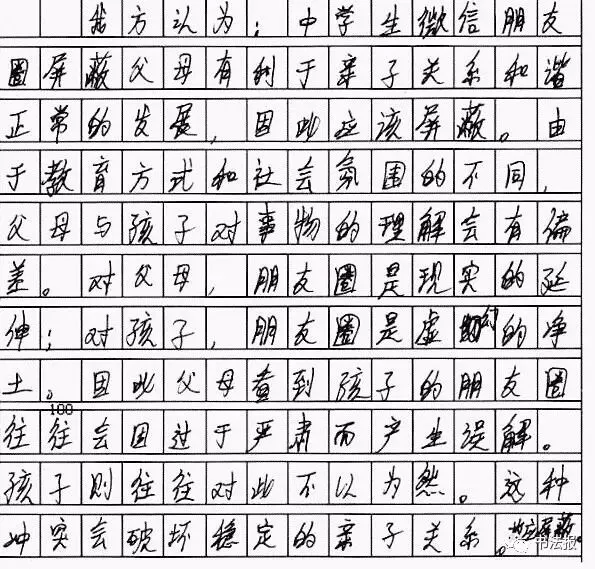 我方认为：中学生微信朋友
圈屏蔽父母有利于亲子关系和谐
正常的发展，因此应该屏蔽。由
于教育方式和社会氛围的不同，
父母与孩子对事物的理解会有偏
差。对父母，朋友圈是现实的延
伸；对孩子，朋友圈是虚幻的净
土。因此父母看到孩子的朋友圈
100
往往会因过于严肃而产生误解。
孩子则往往对此不以为然。这种
冲突会破坏稳定的亲子关系。故应屏蔽。
书法报